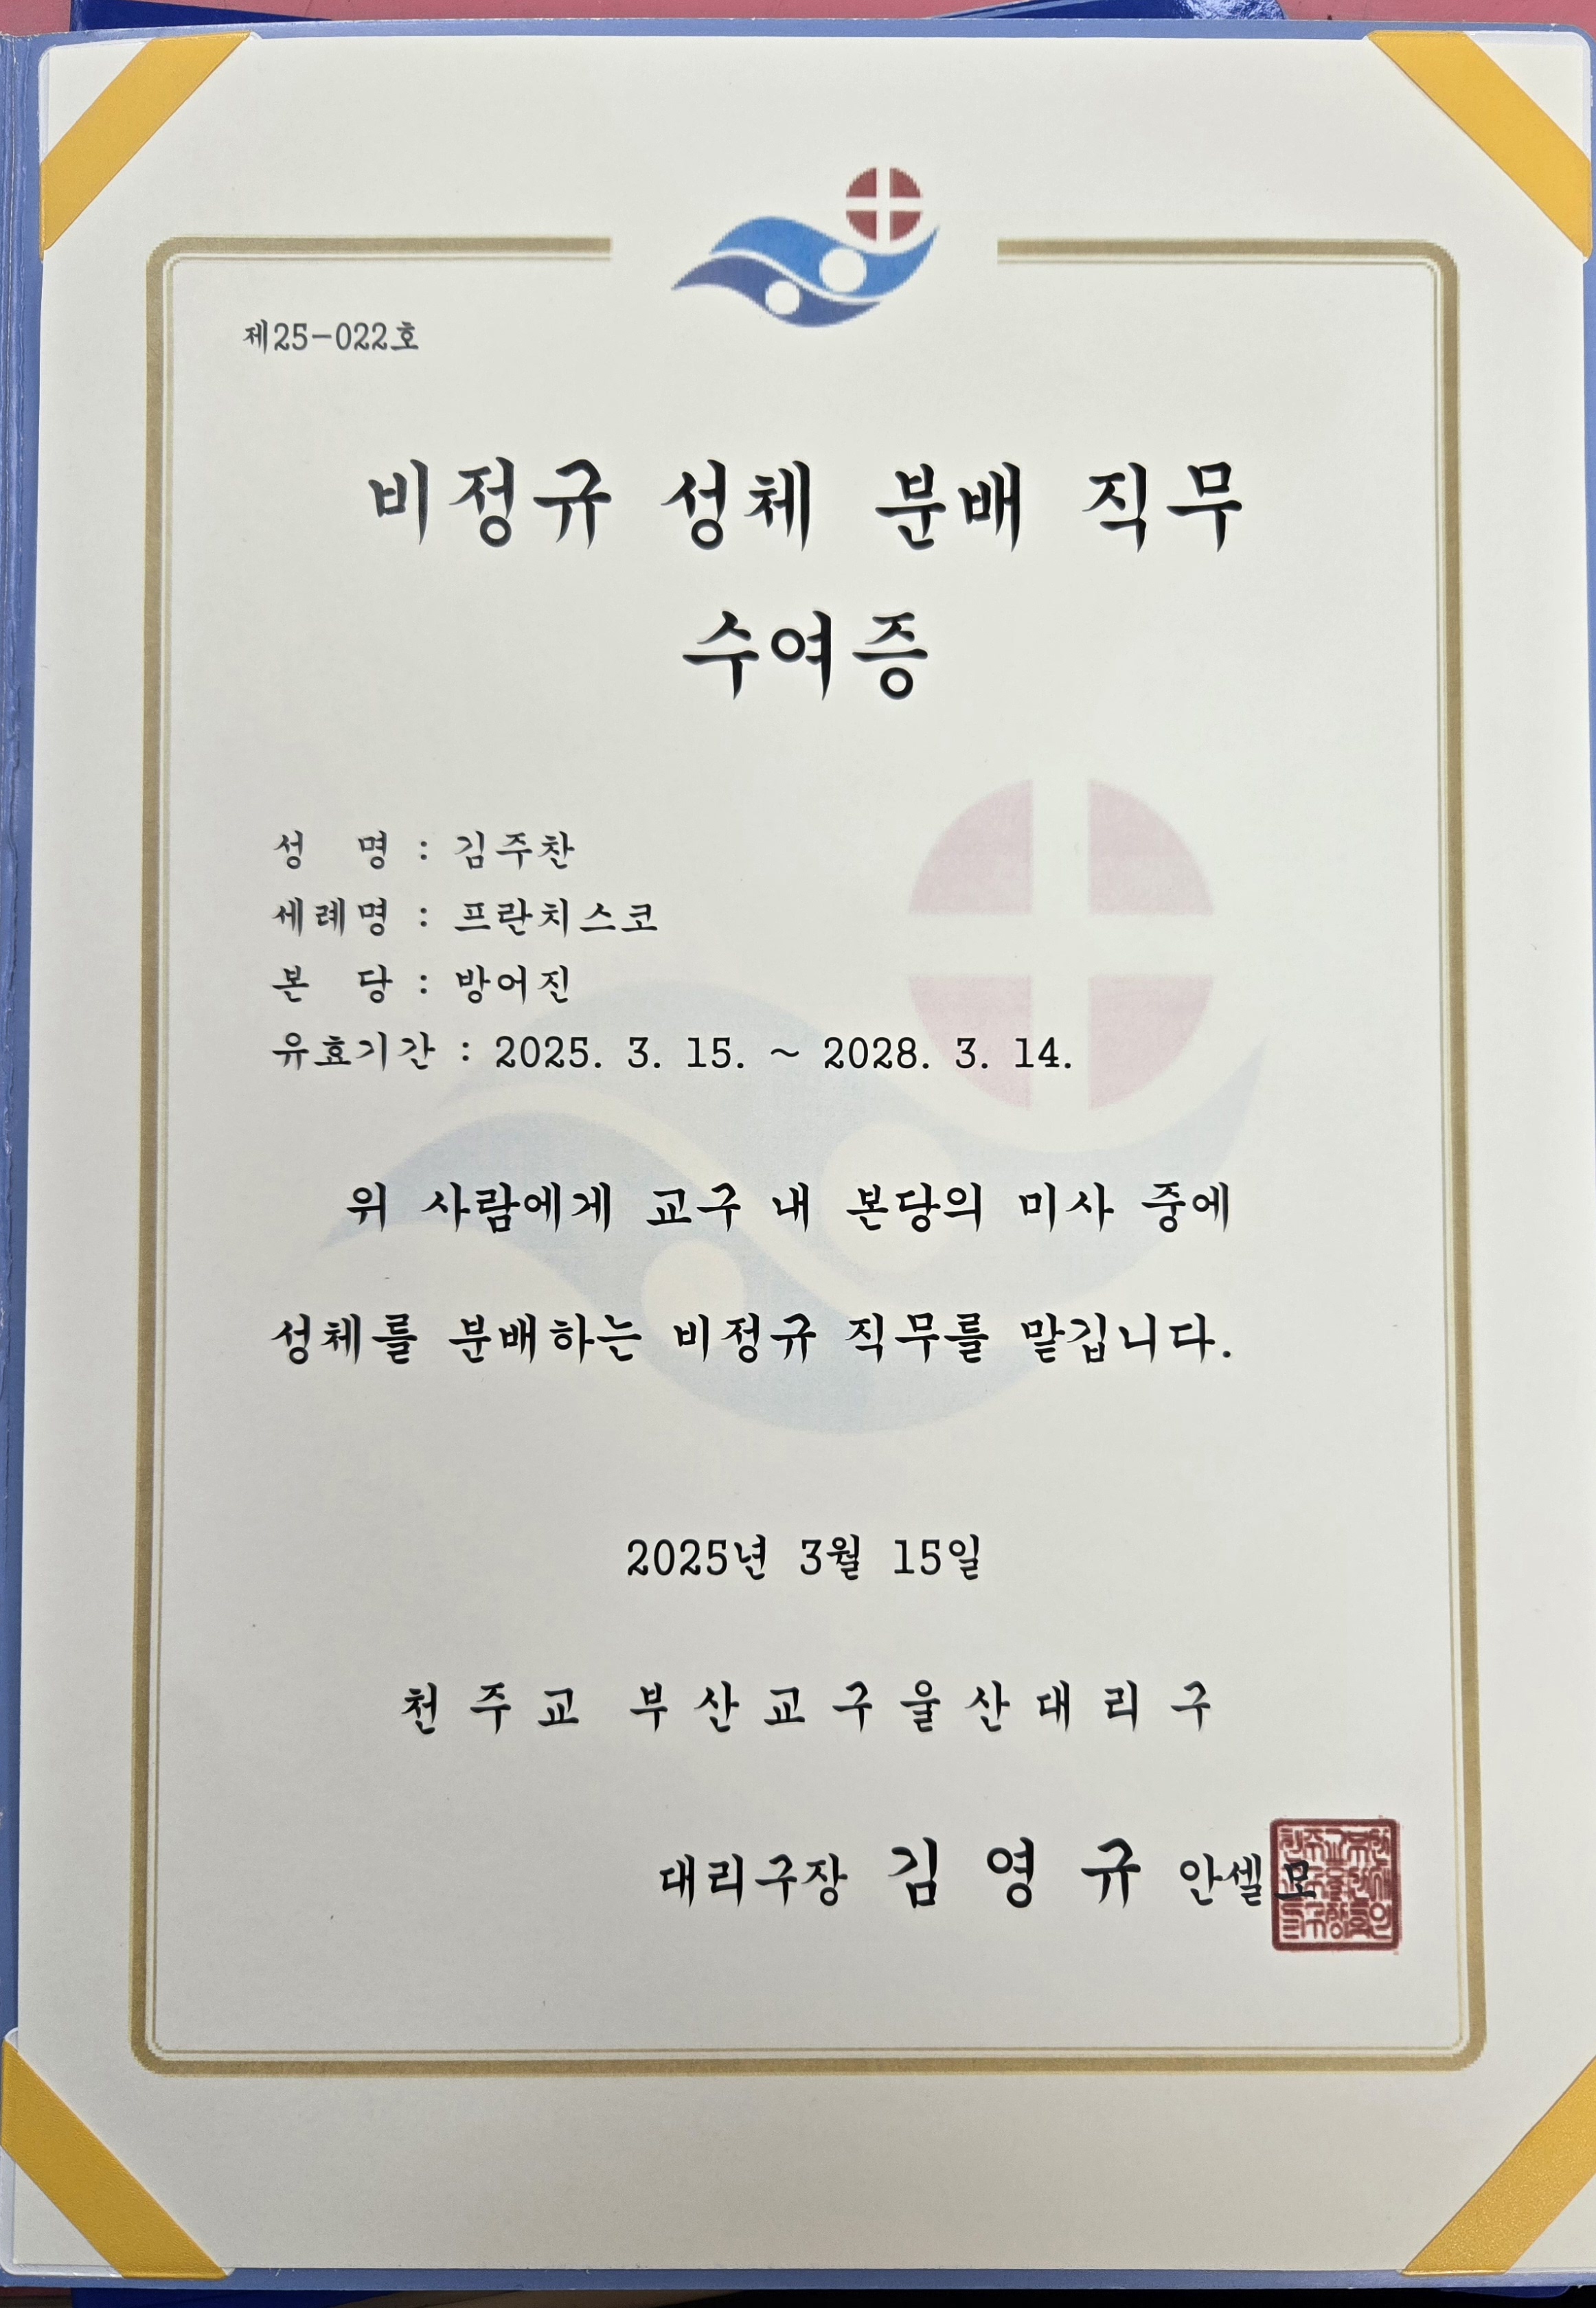 제25-022호
비정규 성체 분배 직무
수여증
성 명 : 김주찬
세례명 : 프란치스코
본 당 : 방어진
유효기간 : 2025. 3. 15. ~ 2028. 3. 14.
위 사람에게 교구 내 본당의 미사 중에
성체를 분배하는 비정규 직무를 맡깁니다.
2025년 3월 15일
천 주 교 부 산 교 구 울 산 대 리 구
대리구장 김 영 규 안셀모